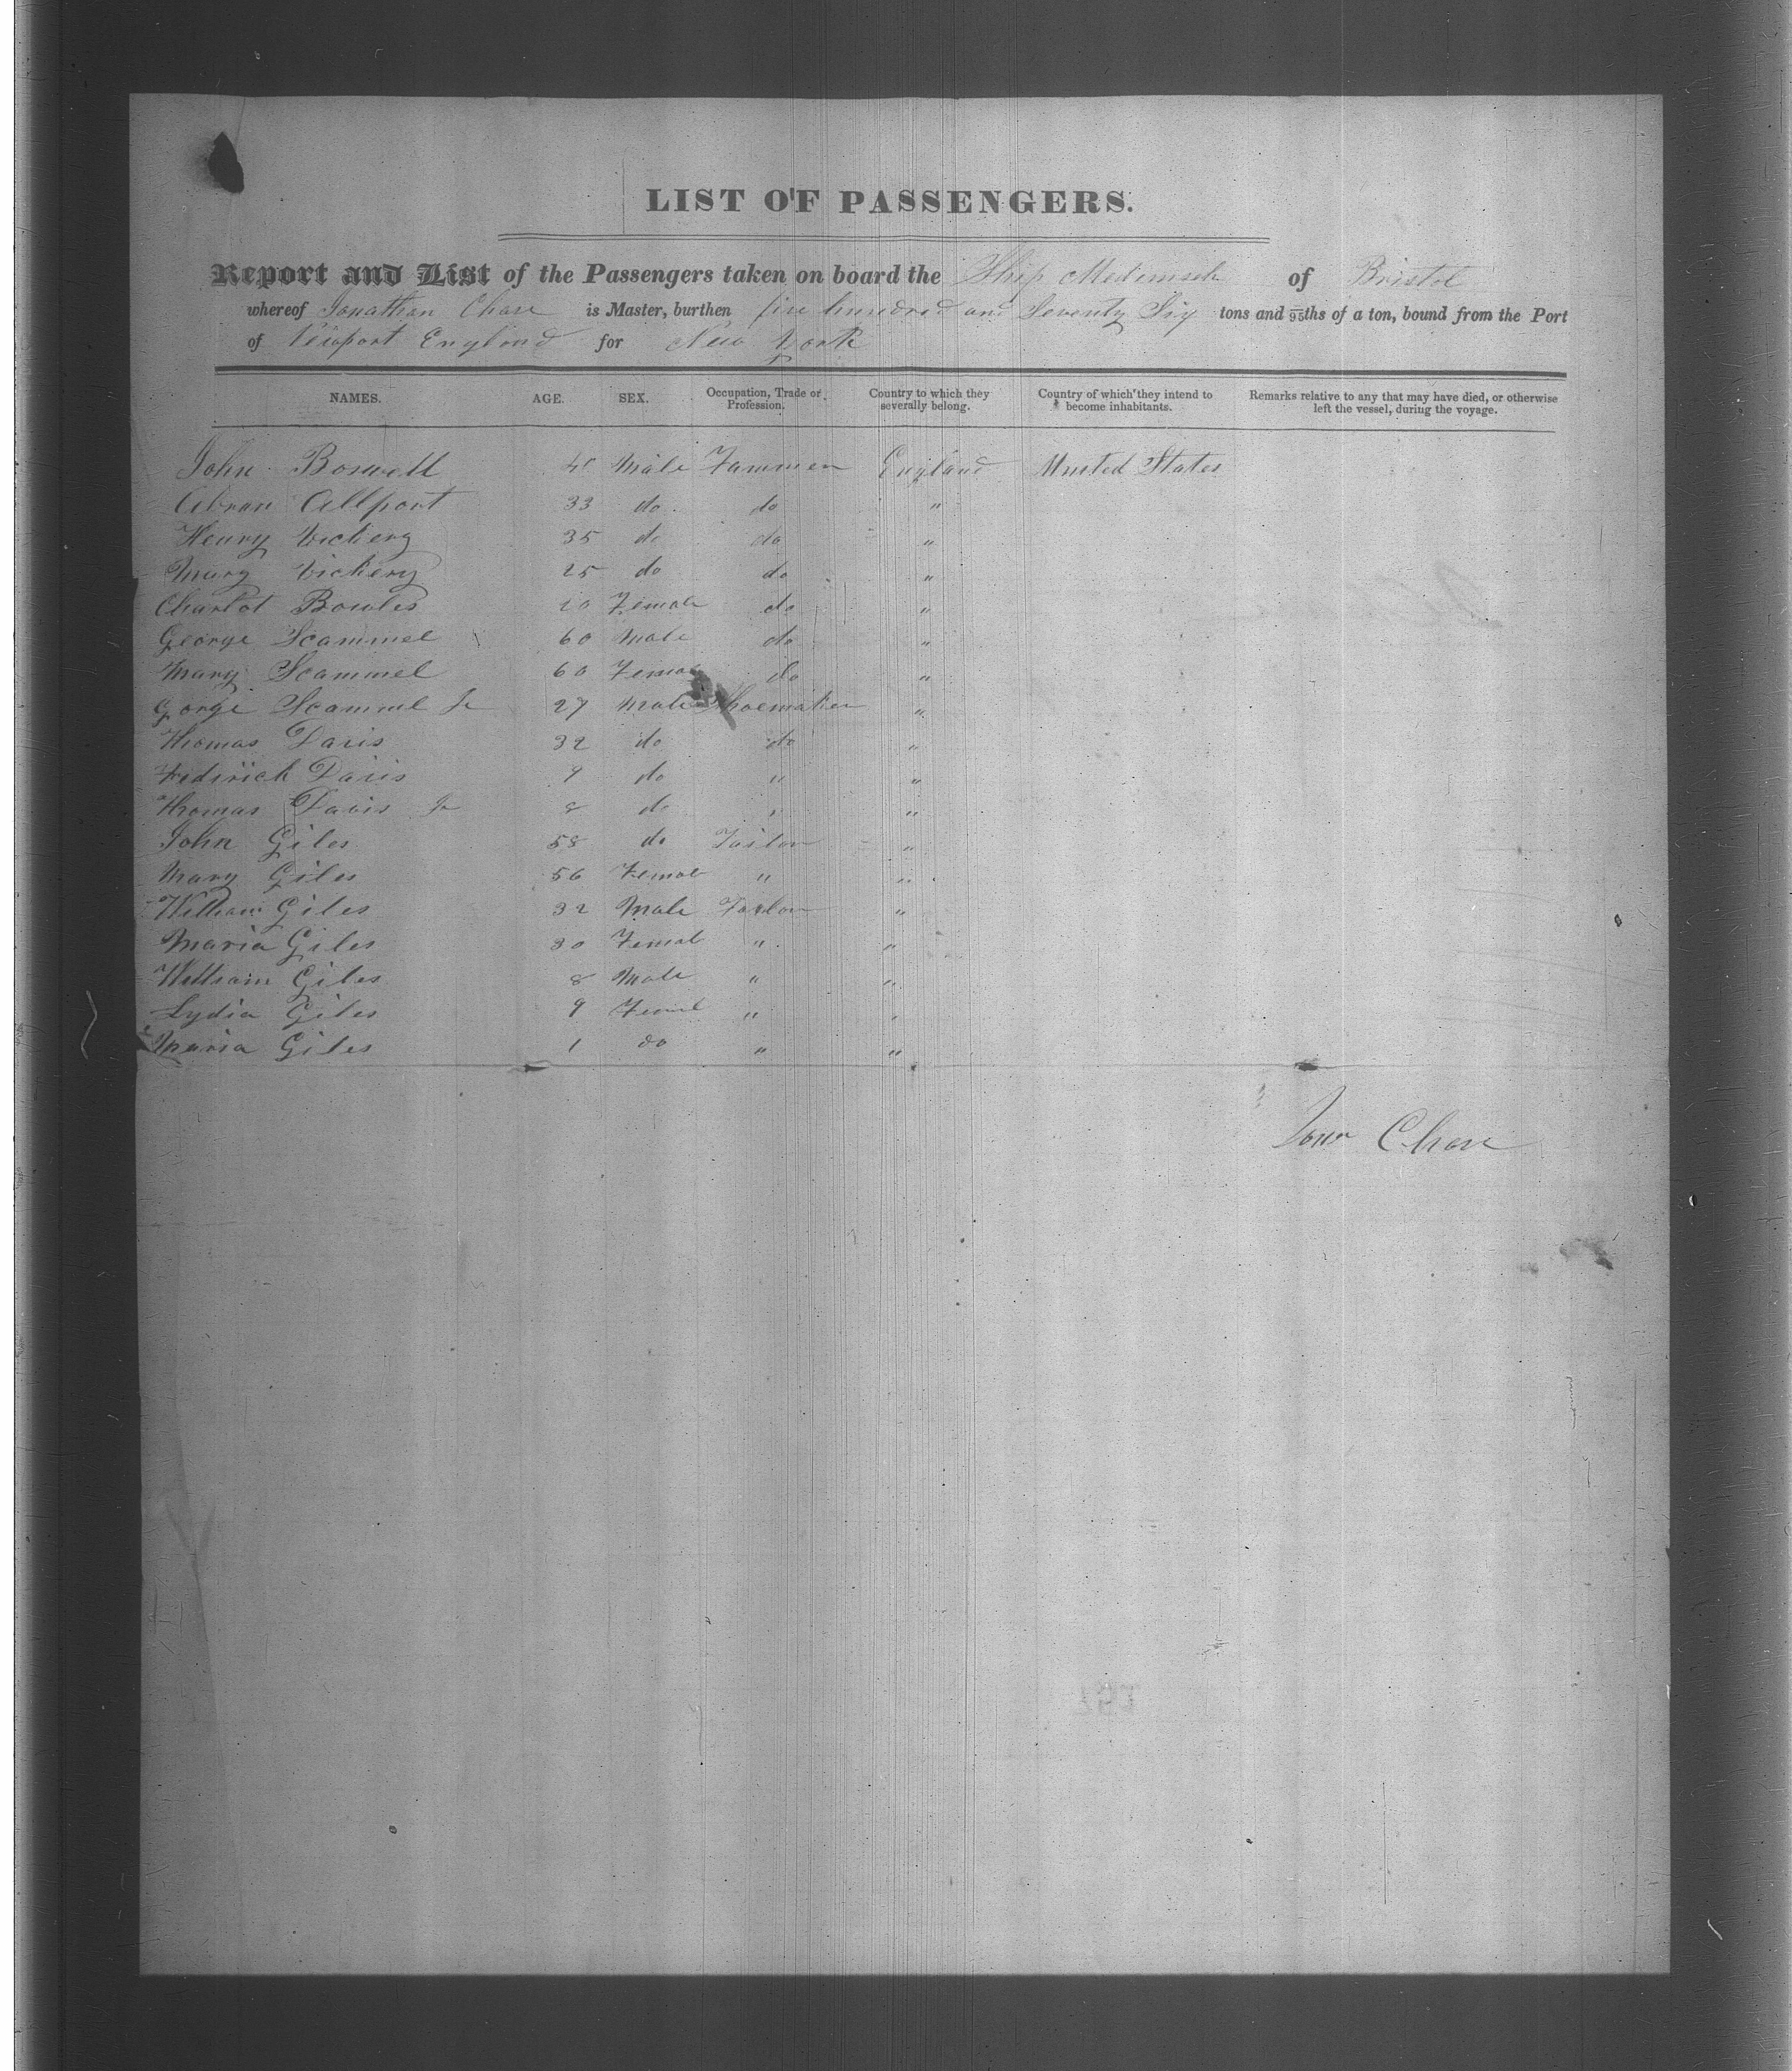 LIST OF PASSENGERS.
Report and List of the Passengers taken on board the Ship of Bristol
whereof Jonathan Chase is Master, burthen five hundred and Seventy Six tons and /95ths of a ton, bound from the Port
of Newport England for New York
NAMES. AGE. SEX. Occupation, Trade or Profession. Country to which they severally belong. Country of which they intend to become inhabitants. Remarks relative to any that may have died, or otherwise left the vessel, during the voyage.
John Boswell Male England United States
Abram Allport 33 do do "
Henry Vickery 35 do do "
Mary Vickery 25 do do "
Charlot Bowles 20 Female do "
George Scammel 60 Male do "
Mary Scammel 60 Female do "
Gorge Scammel Jr 27 Male Shoemaker "
Thomas Davis 32 do do "
Fredirick Davis 9 do " "
Thomas Davis Jr 8 do " "
John Giles 58 do Tailor "
Mary Giles 56 Female " "
William Giles 32 Male Tailor "
Maria Giles 30 Femal " "
William Giles 8 Male " "
Lydia Giles 9 Femal " "
Maria Giles 1 do " "
Jonn Chase